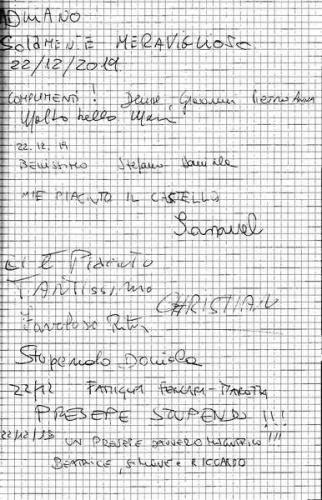 ADMANO
SOLAMENTE MERAVIGLIOSO
22/12/2019
COMPLIMENTI! Pietro Anna
Molto bello
22.12.19
BENISSIMO Stefano Daniela
MIE PIACIUTO IL CASTELLO
Samuel
CI È Piaciuto
TANTISSIMO
CHRISTIAN
Favoloso
Stupendo Daniela
22/12 FAMIGLIA FERRARI-MAROTTA
PRESEPE STUPENDO !!!
22/12/19 UN PRESEPE DAVVERO MAGNIFICO!!!
BEATRICE, SIMONE e RICCARDO